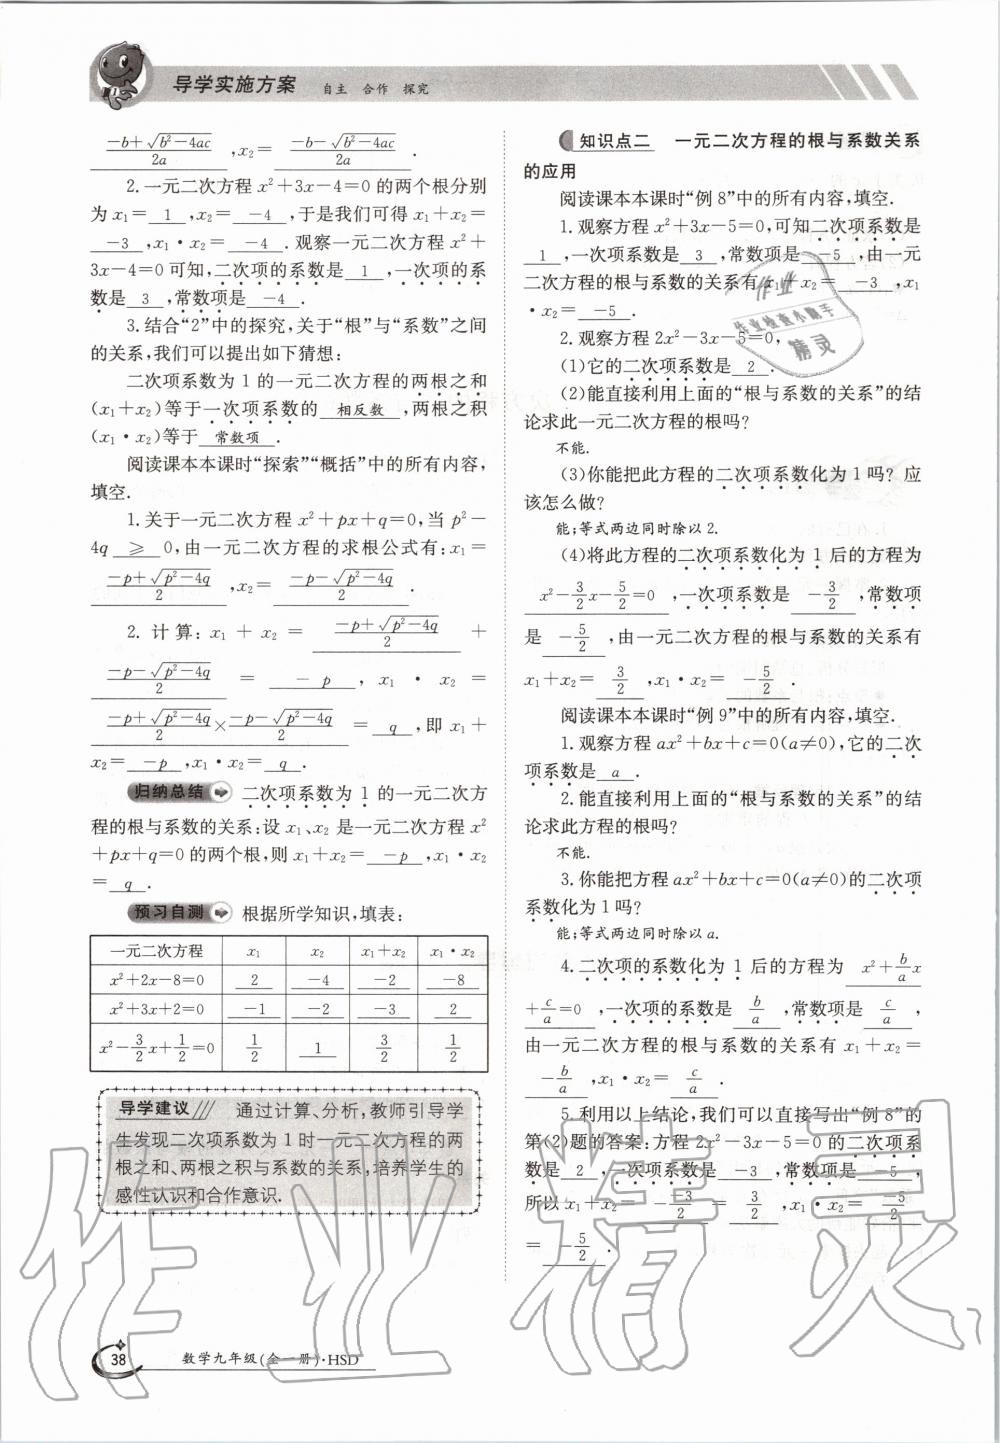 导学实施方案 自主 合作 探究
(-b+√(b²-4ac))/2a ,x₂= (-b-√(b²-4ac))/2a .
2.一元二次方程 x²+3x-4=0 的两个根分别
为 x₁= 1 ,x₂= -4 ,于是我们可得 x₁+x₂=
-3 ,x₁·x₂= -4 .观察一元二次方程 x²+
3x-4=0 可知,二次项的系数是 1 ,一次项的系
数是 3 ,常数项是 -4 .
3.结合“2”中的探究,关于“根”与“系数”之间
的关系,我们可以提出如下猜想:
二次项系数为 1 的一元二次方程的两根之和
(x₁+x₂)等于一次项系数的 相反数 ,两根之积
(x₁·x₂)等于 常数项 .
阅读课本本课时“探索”“概括”中的所有内容,
填空.
1.关于一元二次方程 x²+px+q=0,当 p²-
4q ≥ 0,由一元二次方程的求根公式有:x₁=
(-p+√(p²-4q))/2 ,x₂= (-p-√(p²-4q))/2 .
2. 计算: x₁ + x₂ = (-p+√(p²-4q))/2 +
(-p-√(p²-4q))/2 = -p , x₁ · x₂ =
(-p+√(p²-4q))/2 × (-p-√(p²-4q))/2 = q ,即 x₁+
x₂= -p ,x₁·x₂= q .
归纳总结 二次项系数为 1 的一元二次方
程的根与系数的关系:设 x₁、x₂ 是一元二次方程 x²
+px+q=0 的两个根,则 x₁+x₂= -p ,x₁·x₂
= q .
预习自测 根据所学知识,填表:
一元二次方程 x₁ x₂ x₁+x₂ x₁·x₂
x²+2x-8=0 2 -4 -2 -8
x²+3x+2=0 -1 -2 -3 2
x²-3/2x+1/2=0 1/2 1 3/2 1/2
导学建议 通过计算、分析,教师引导学
生发现二次项系数为 1 时一元二次方程的两
根之和、两根之积与系数的关系,培养学生的
感性认识和合作意识.
知识点二 一元二次方程的根与系数关系
的应用
阅读课本本课时“例 8”中的所有内容,填空.
1.观察方程 x²+3x-5=0,可知二次项系数是
1 ,一次项系数是 3 ,常数项是 -5 ,由一元
二次方程的根与系数的关系有 x₁+x₂= -3 ,x₁
·x₂= -5 .
2.观察方程 2x²-3x-5=0,
(1)它的二次项系数是 2 .
(2)能直接利用上面的“根与系数的关系”的结
论求此一元二次方程的根吗?
不能.
(3)你能把此方程的二次项系数化为 1 吗? 应
该怎么做?
能;等式两边同时除以 2.
(4)将此方程的二次项系数化为 1 后的方程为
x²-3/2x-5/2=0 ,一次项系数是 -3/2 ,常数项
是 -5/2 ,由一元二次方程的根与系数的关系有
x₁+x₂= 3/2 ,x₁·x₂= -5/2 .
阅读课本本课时“例 9”中的所有内容,填空.
1.观察方程 ax²+bx+c=0(a≠0),它的二次
项系数是 a .
2.能直接利用上面的“根与系数的关系”的结
论求此方程的根吗?
不能.
3.你能把方程 ax²+bx+c=0(a≠0)的二次项
系数化为 1 吗?
能;等式两边同时除以 a.
4.二次项的系数化为 1 后的方程为 x²+b/a x
+c/a=0 ,一次项的系数是 b/a ,常数项是 c/a ,
由一元二次方程的根与系数的关系有 x₁+x₂=
-b/a ,x₁·x₂= c/a .
5.利用以上结论,我们可以直接写出“例 8”的
第(2)题的答案:方程 2x²-3x-5=0 的二次项系
数是 2 ,一次项系数是 -3 ,常数项是 -5 ,
所以 x₁+x₂= -(-3)/2 = 3/2 ,x₁·x₂= -5/2
= -5/2 .
作业
作业检查小助手
精灵
作业精灵
38 数学九年级(全一册)·HSD